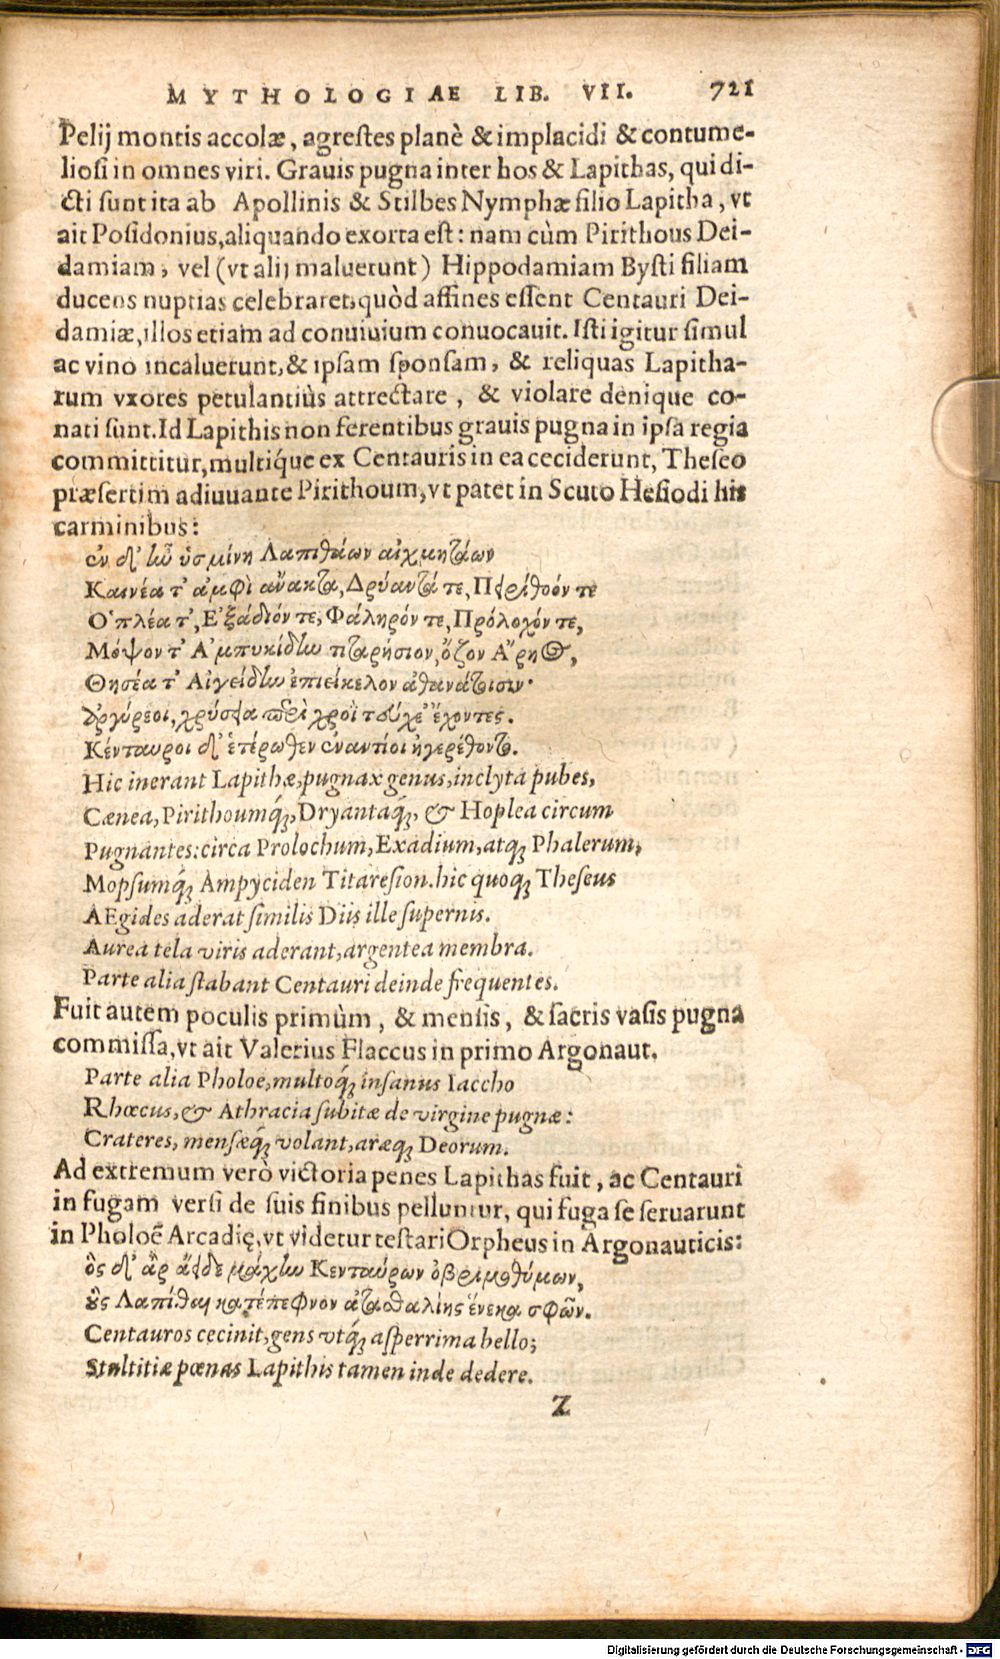 MYTHOLOGIAE LIB. VII. 721
Pelij montis accolæ, agrestes planè & implacidi & contume-
liosi in omnes viri. Grauis pugna inter hos & Lapithas, qui di-
cti sunt ita ab Apollinis & Stilbes Nymphæ filio Lapitha, vt
ait Posidonius, aliquando exorta est: nam cùm Pirithous Dei-
damiam, vel (vt alij maluerunt) Hippodamiam Bysti filiam
ducens nuptias celebraret, quòd affines essent Centauri Dei-
damiæ, illos etiam ad conuiuium conuocauit. Isti igitur simul
ac vino incaluerunt, & ipsam sponsam, & reliquas Lapitha-
rum vxores petulantiùs attrectare, & violare denique co-
nati sunt. Id Lapithis non ferentibus grauis pugna in ipsa regia
committitur, multíque ex Centauris in ea ceciderunt, Theseo
præsertim adiuuante Pirithoum, vt patet in Scuto Hesiodi his
carminibus:
ἐν δ' ἦν ὑσμίνη Λαπιθάων αἰχμητάων
Καινέα τ' ἀμφὶ ἄνακτα, Δρύαντά τε, Πειρίθοόν τε
Ὁπλέα τ', Ἐξάδιόν τε, Φάληρόν τε, Πρόλοχόν τε,
Μόψον τ' Ἀμπυκίδην τιταρήσιον, ὄζον Ἄρηος,
Θησέα τ' Αἰγείδην ἐπιείκελον ἀθανάτοισιν·
ἀργύρεοι, χρύσεια περὶ χροῒ τεύχε' ἔχοντες.
Κένταυροι δ' ἑτέρωθεν ἐναντίοι ἠγερέθοντο.
Hic inerant Lapithæ, pugnax genus, inclyta pubes,
Cænea, Pirithoumq́;, Dryantaq́;, & Hoplea circum
Pugnantes: circa Prolochum, Exadium, atq; Phalerum,
Mopsumq́; Ampyciden Titaresion. hic quoq; Theseus
AEgides aderat similis Diis ille supernis.
Aurea tela viris aderant, argentea membra.
Parte alia stabant Centauri deinde frequentes.
Fuit autem poculis primùm, & mensis, & sacris vasis pugna
commissa, vt ait Valerius Flaccus in primo Argonaut.
Parte alia Pholoe, multoq́; insanus Iaccho
Rhœcus, & Athracia subitæ de virgine pugnæ:
Crateres, mensæq́; volant, aræq; Deorum.
Ad extremum verò victoria penes Lapithas fuit, ac Centauri
in fugam versi de suis finibus pelluntur, qui fuga se seruarunt
in Pholoē Arcadię, vt videtur testari Orpheus in Argonauticis:
ὃς δ' ἂρ ἄειδε μάχην Κενταύρων ὀβριμοθύμων,
οὓς Λαπίθαι κατέπεφνον ἀταθαλίης ἕνεκα σφῶν.
Centauros cecinit, gens vtq́; asperrima bello;
Stultitiæ pœnas Lapithis tamen inde dedere.
Z
Digitalisierung gefördert durch die Deutsche Forschungsgemeinschaft - DFG